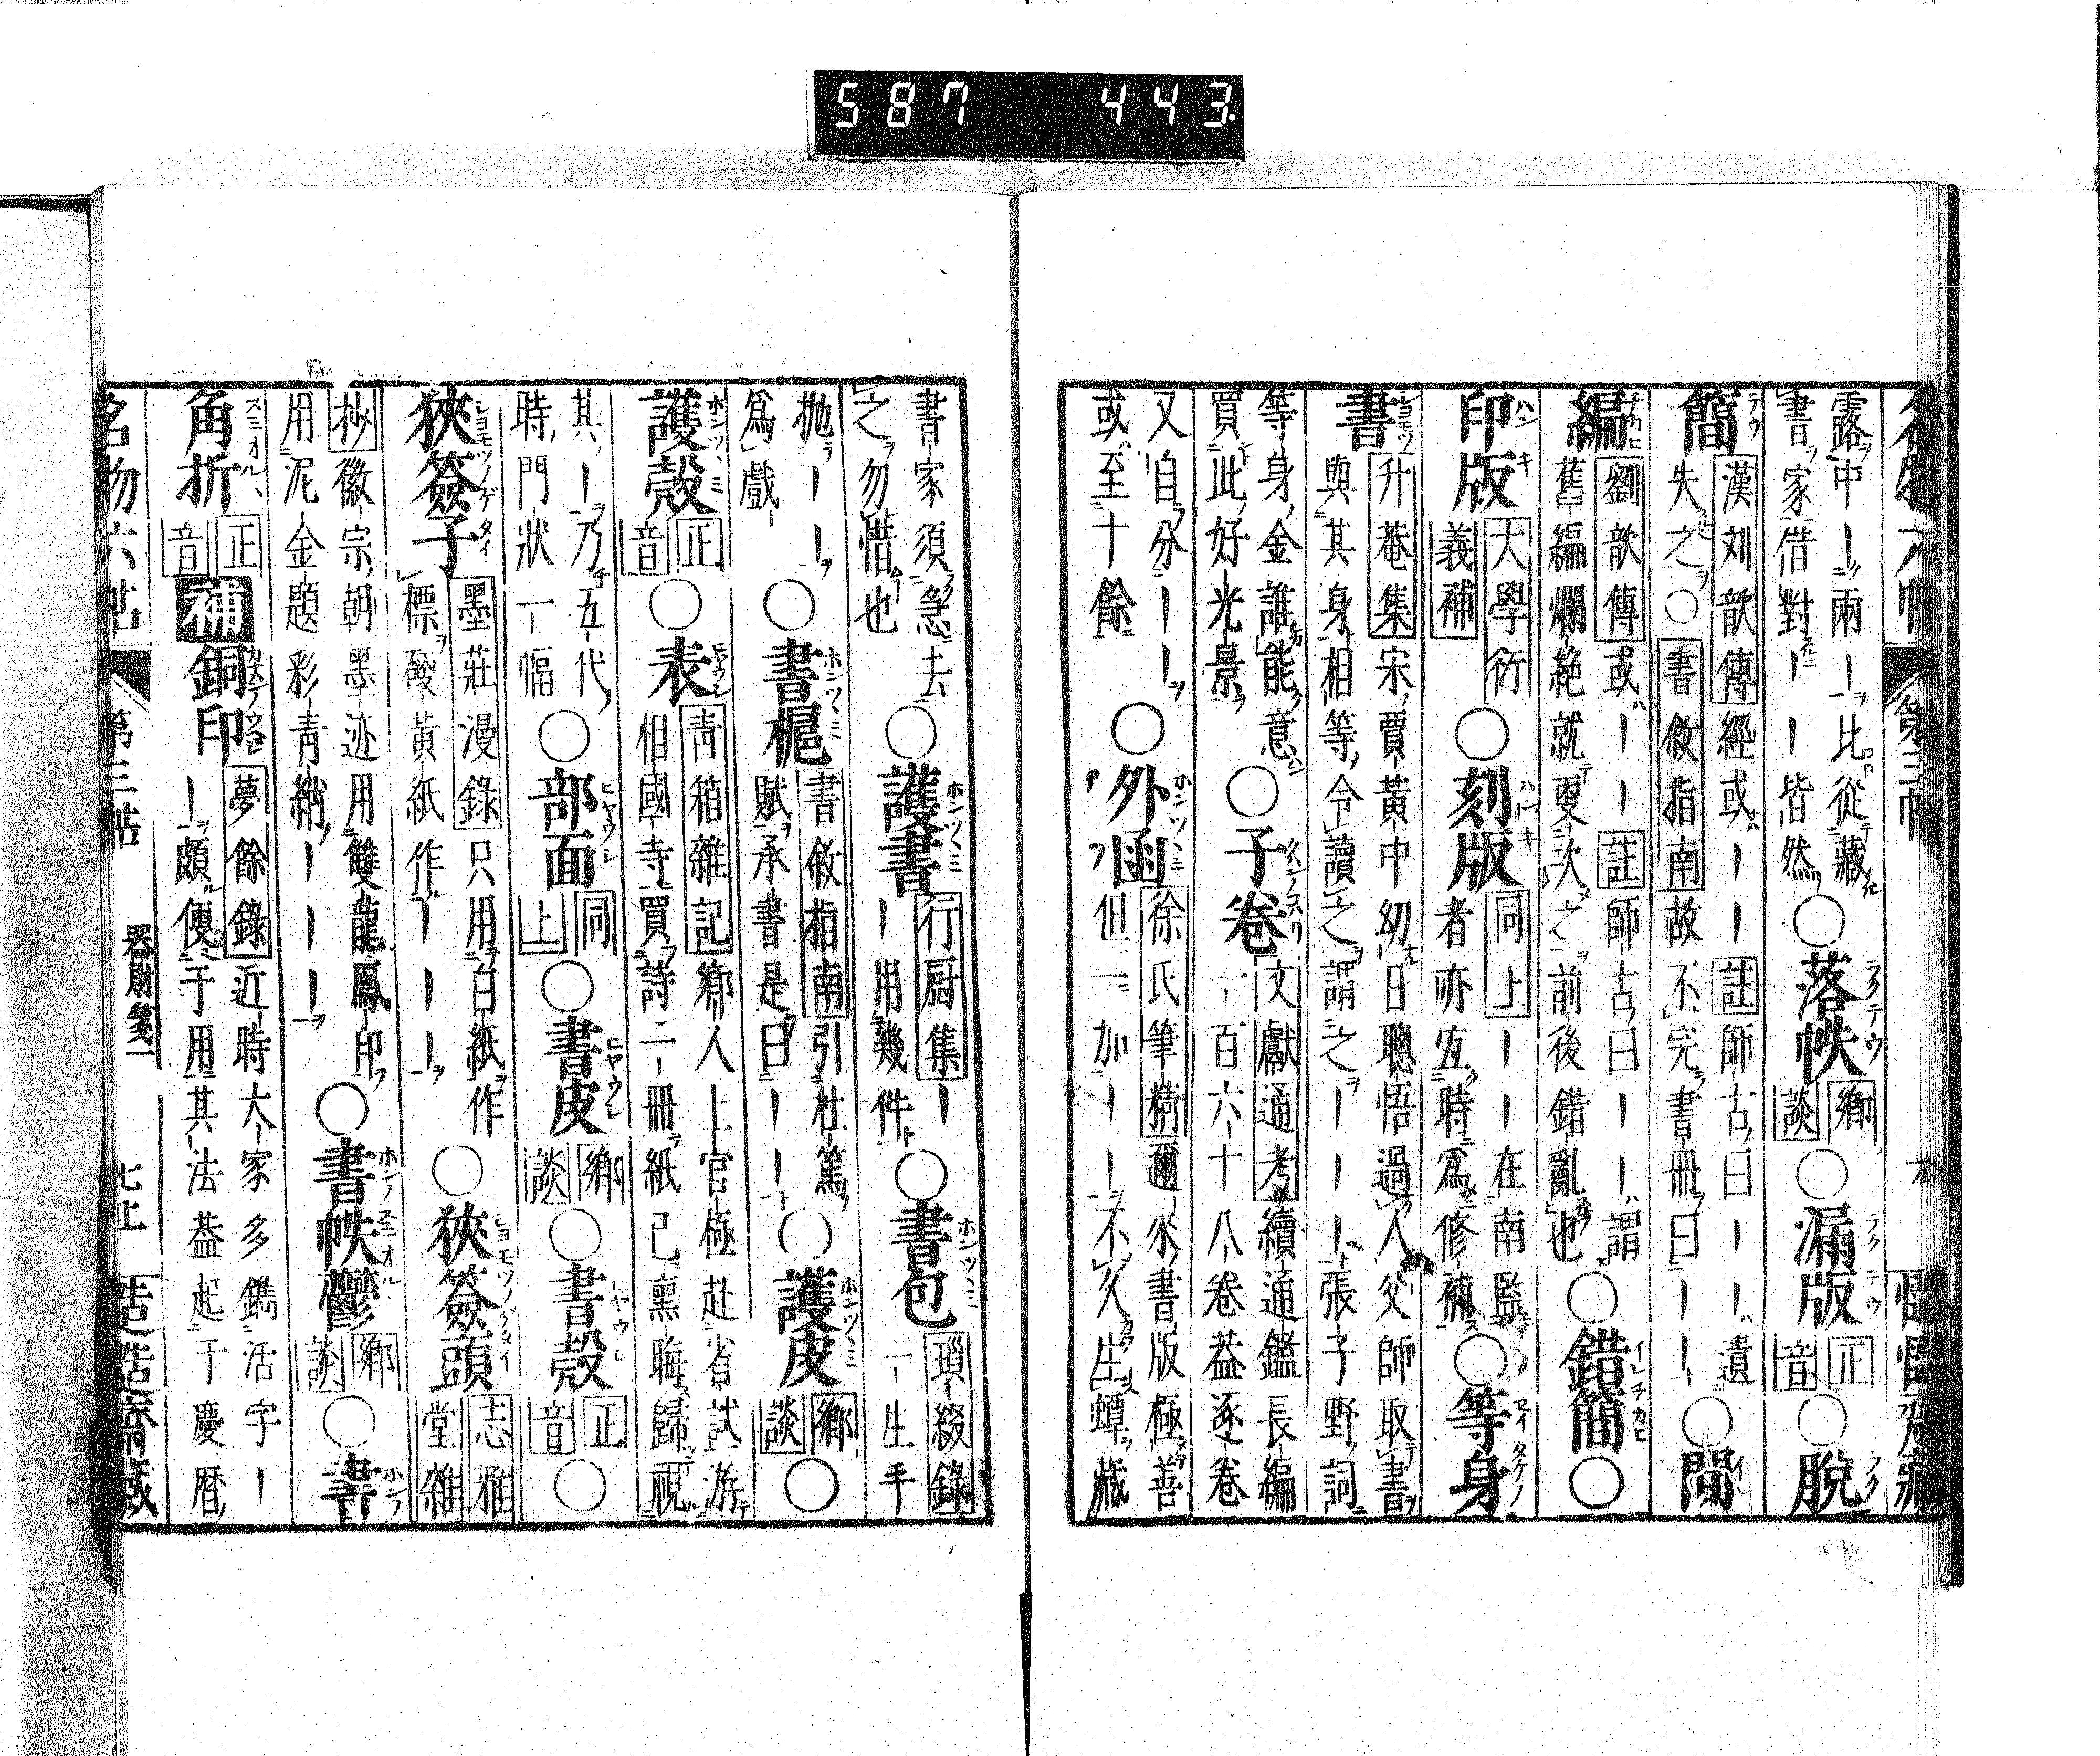 587 443
名物六帖 第三帖
露中｜兩｜比從藏
書家借對｜｜皆然
○落帙 鄉談 ○漏版 正音 ○脫
簡 漢刘歆傳 經或｜｜註師古曰｜｜遺
失之○書敘指南 故不完書冊曰｜｜
○間
編 劉歆傳 或｜｜註師古曰｜｜謂
舊編爛絶就更次之前後錯亂也
○錯簡○
印版 大學衍義補 ○刻版 同上 ｜｜在南監
者亦宜時爲修補
○等身
書 升菴集 宋賈黃中幼日聰悟過人父師取書
與其身相等令讀之謂之｜｜｜張子野詞
等身金誰能意
買此好光景
○子卷 文獻通考 續通鑑長編
一百六十八卷蓋逐卷
又自分｜｜
或至十餘
○外函 徐氏筆精 邇來書版極善
但一加｜｜不久生蟫藏
書家須急去
之勿惜也
○護書 行厨集 ｜
｜用幾件
○書包 瑣綴錄
一生手
拋｜｜
爲戲
○書梶 書敘指南 引杜篤
賦承書是曰｜｜
○護皮 鄉談 ○
護殼 正音 ○表 青箱雜記 鄉人上官極赴省試游
相國寺買詩二冊紙已熏晦歸視
其｜乃五代
時門狀一幅
○部面 同上 ○書皮 鄉談 ○書殼 正音 ○
狹簽子 墨莊漫錄 只用白紙作
標硾黃紙作｜｜｜
○狹簽頭 志雅堂雜
抄 徽宗朝墨迹用雙龍鳳印
用泥金題彩青綃｜｜｜
○書帙鬱 鄉談 ○書
角折 正音 補 銅印 夢餘錄 近時大家多鐫活字｜
｜頗便于用其法蓋起于慶曆
名物六帖 第三帖 器財箋一 七上